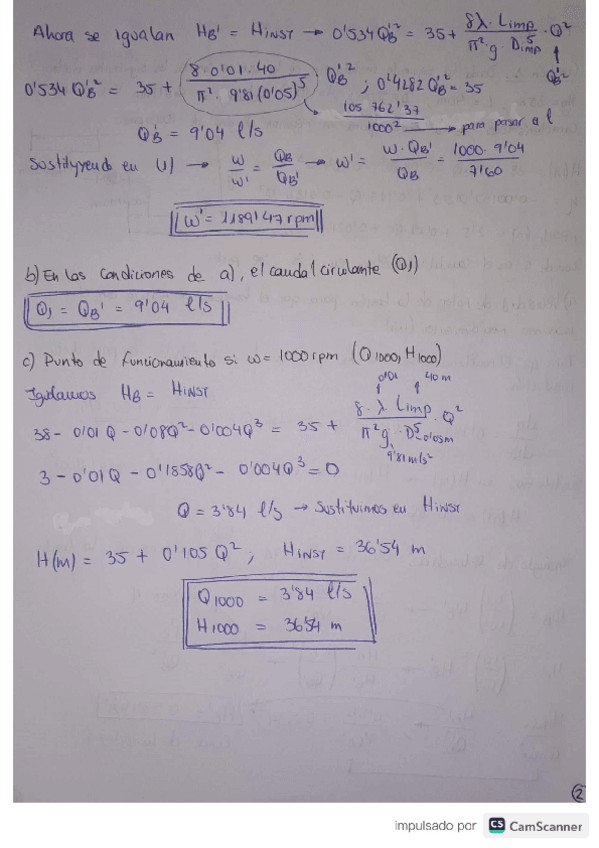 Ahora se igualan HB' = HINST → 0'534 QB'² = 35 + 8λ · Limp / π² · g · D⁵imp · Q²
↑ QB'²
0'534 QB'² = 35 + 8 · 0'01 · 40 / π² · 9'81 (0'05)⁵ QB'² ; 0'4282 QB'² = 35
105 762'37 / 1000² → para pasar a l
QB' = 9'04 l/s
Sustituyendo en (1) → w/w' = QB/QB' → w' = w · QB' / QB = 1000 · 9'04 / 7'60
w' = 1189'47 rpm
b) En las condiciones de a), el caudal circulante (Q1)
Q1 = QB' = 9'04 l/s
c) Punto de funcionamiento si w = 1000 rpm (Q1000, H1000)
Igualamos HB = HINST
0'01 40 m
38 - 0'01 Q - 0'08Q² - 0'004Q³ = 35 + 8 · λ · Limp / π² g · D⁵ · Q²
0'05m
9'81 m/s²
3 - 0'01Q - 0'1858Q² - 0'004Q³ = 0
Q = 3'84 l/s → Sustituimos en HINST
H(m) = 35 + 0'105 Q² ; HINST = 36'54 m
Q1000 = 3'84 l/s
H1000 = 36'54 m
2
impulsado por CS CamScanner